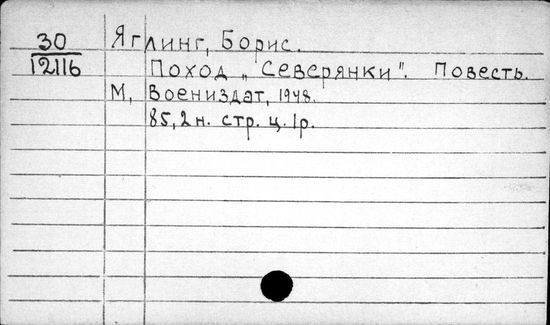 30
12116
Яглинг, Борис.
Поход „Северянки". Повесть.
М, Воениздат, 1948.
85,2 н. стр. ц. 1р.